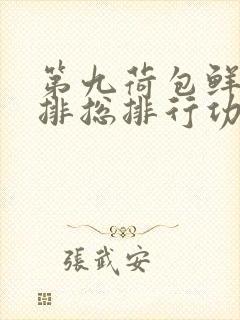 第九荷包鲜
排总排行功
張武安